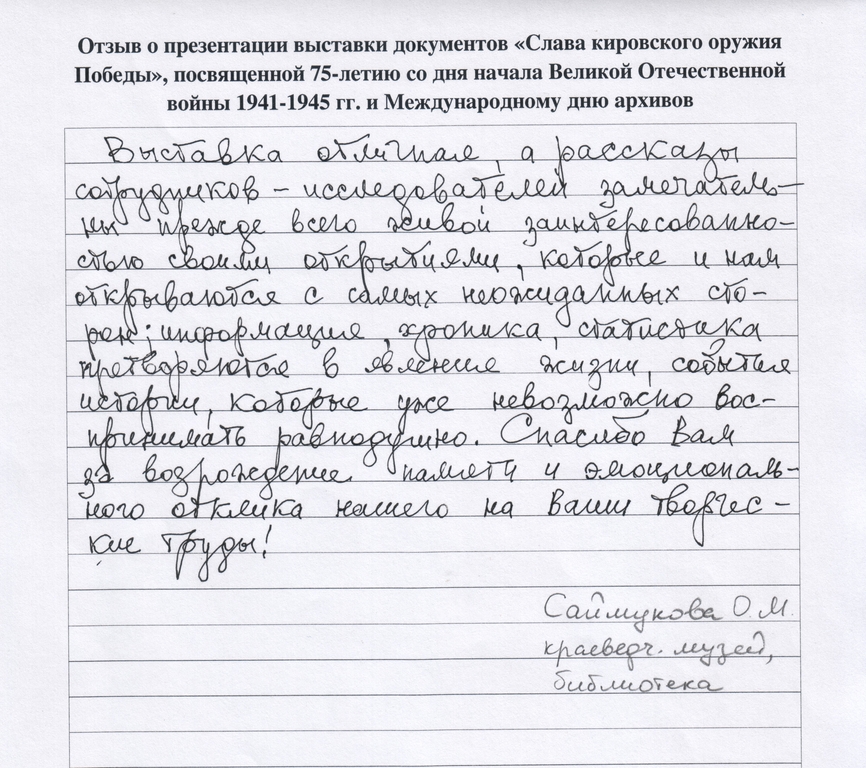 Отзыв о презентации выставки документов «Слава кировского оружия
Победы», посвященной 75-летию со дня начала Великой Отечественной
войны 1941-1945 гг. и Международному дню архивов
Выставка отличная, а рассказы
сотрудников – исследователей замечатель-
ны прежде всего живой заинтересованно-
стью своими открытиями, которые и нам
открываются с самых неожиданных сто-
рон; информация, хроника, статистика
претворяются в явление жизни, события
истории, которые уже невозможно вос-
принимать равнодушно. Спасибо Вам
за возрождение памяти и эмоциональ-
ного отклика нашего на Ваши творчес-
кие труды!
Саймукова О.М.
краеведч. музей,
библиотека